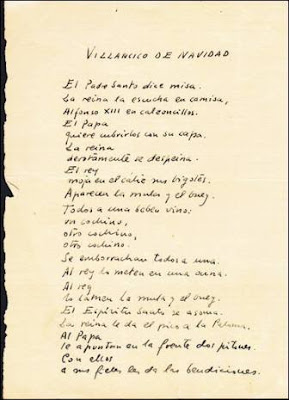 VILLANCICO DE NAVIDAD
El Padre Santo dice misa.
La reina la escucha en camisa,
Alfonso XIII en calzoncillos.
El Papa
quiere cubrirlos con su capa.
La reina
devotamente se despeina.
El rey
moja en el cáliz sus bigotes.
Aparecen la mula y el buey.
Todos a una beben vino:
un cochino,
otro cochino,
otro cochino.
Se emborrachan todos a una.
Al rey lo meten en una cuna.
Al rey
lo lamen la mula y el buey.
El Espíritu Santo se asoma.
La reina le da el pico a la Paloma.
Al Papa
le apuntan en la frente dos pitones.
Con ellos
a sus fieles les da las bendiciones.